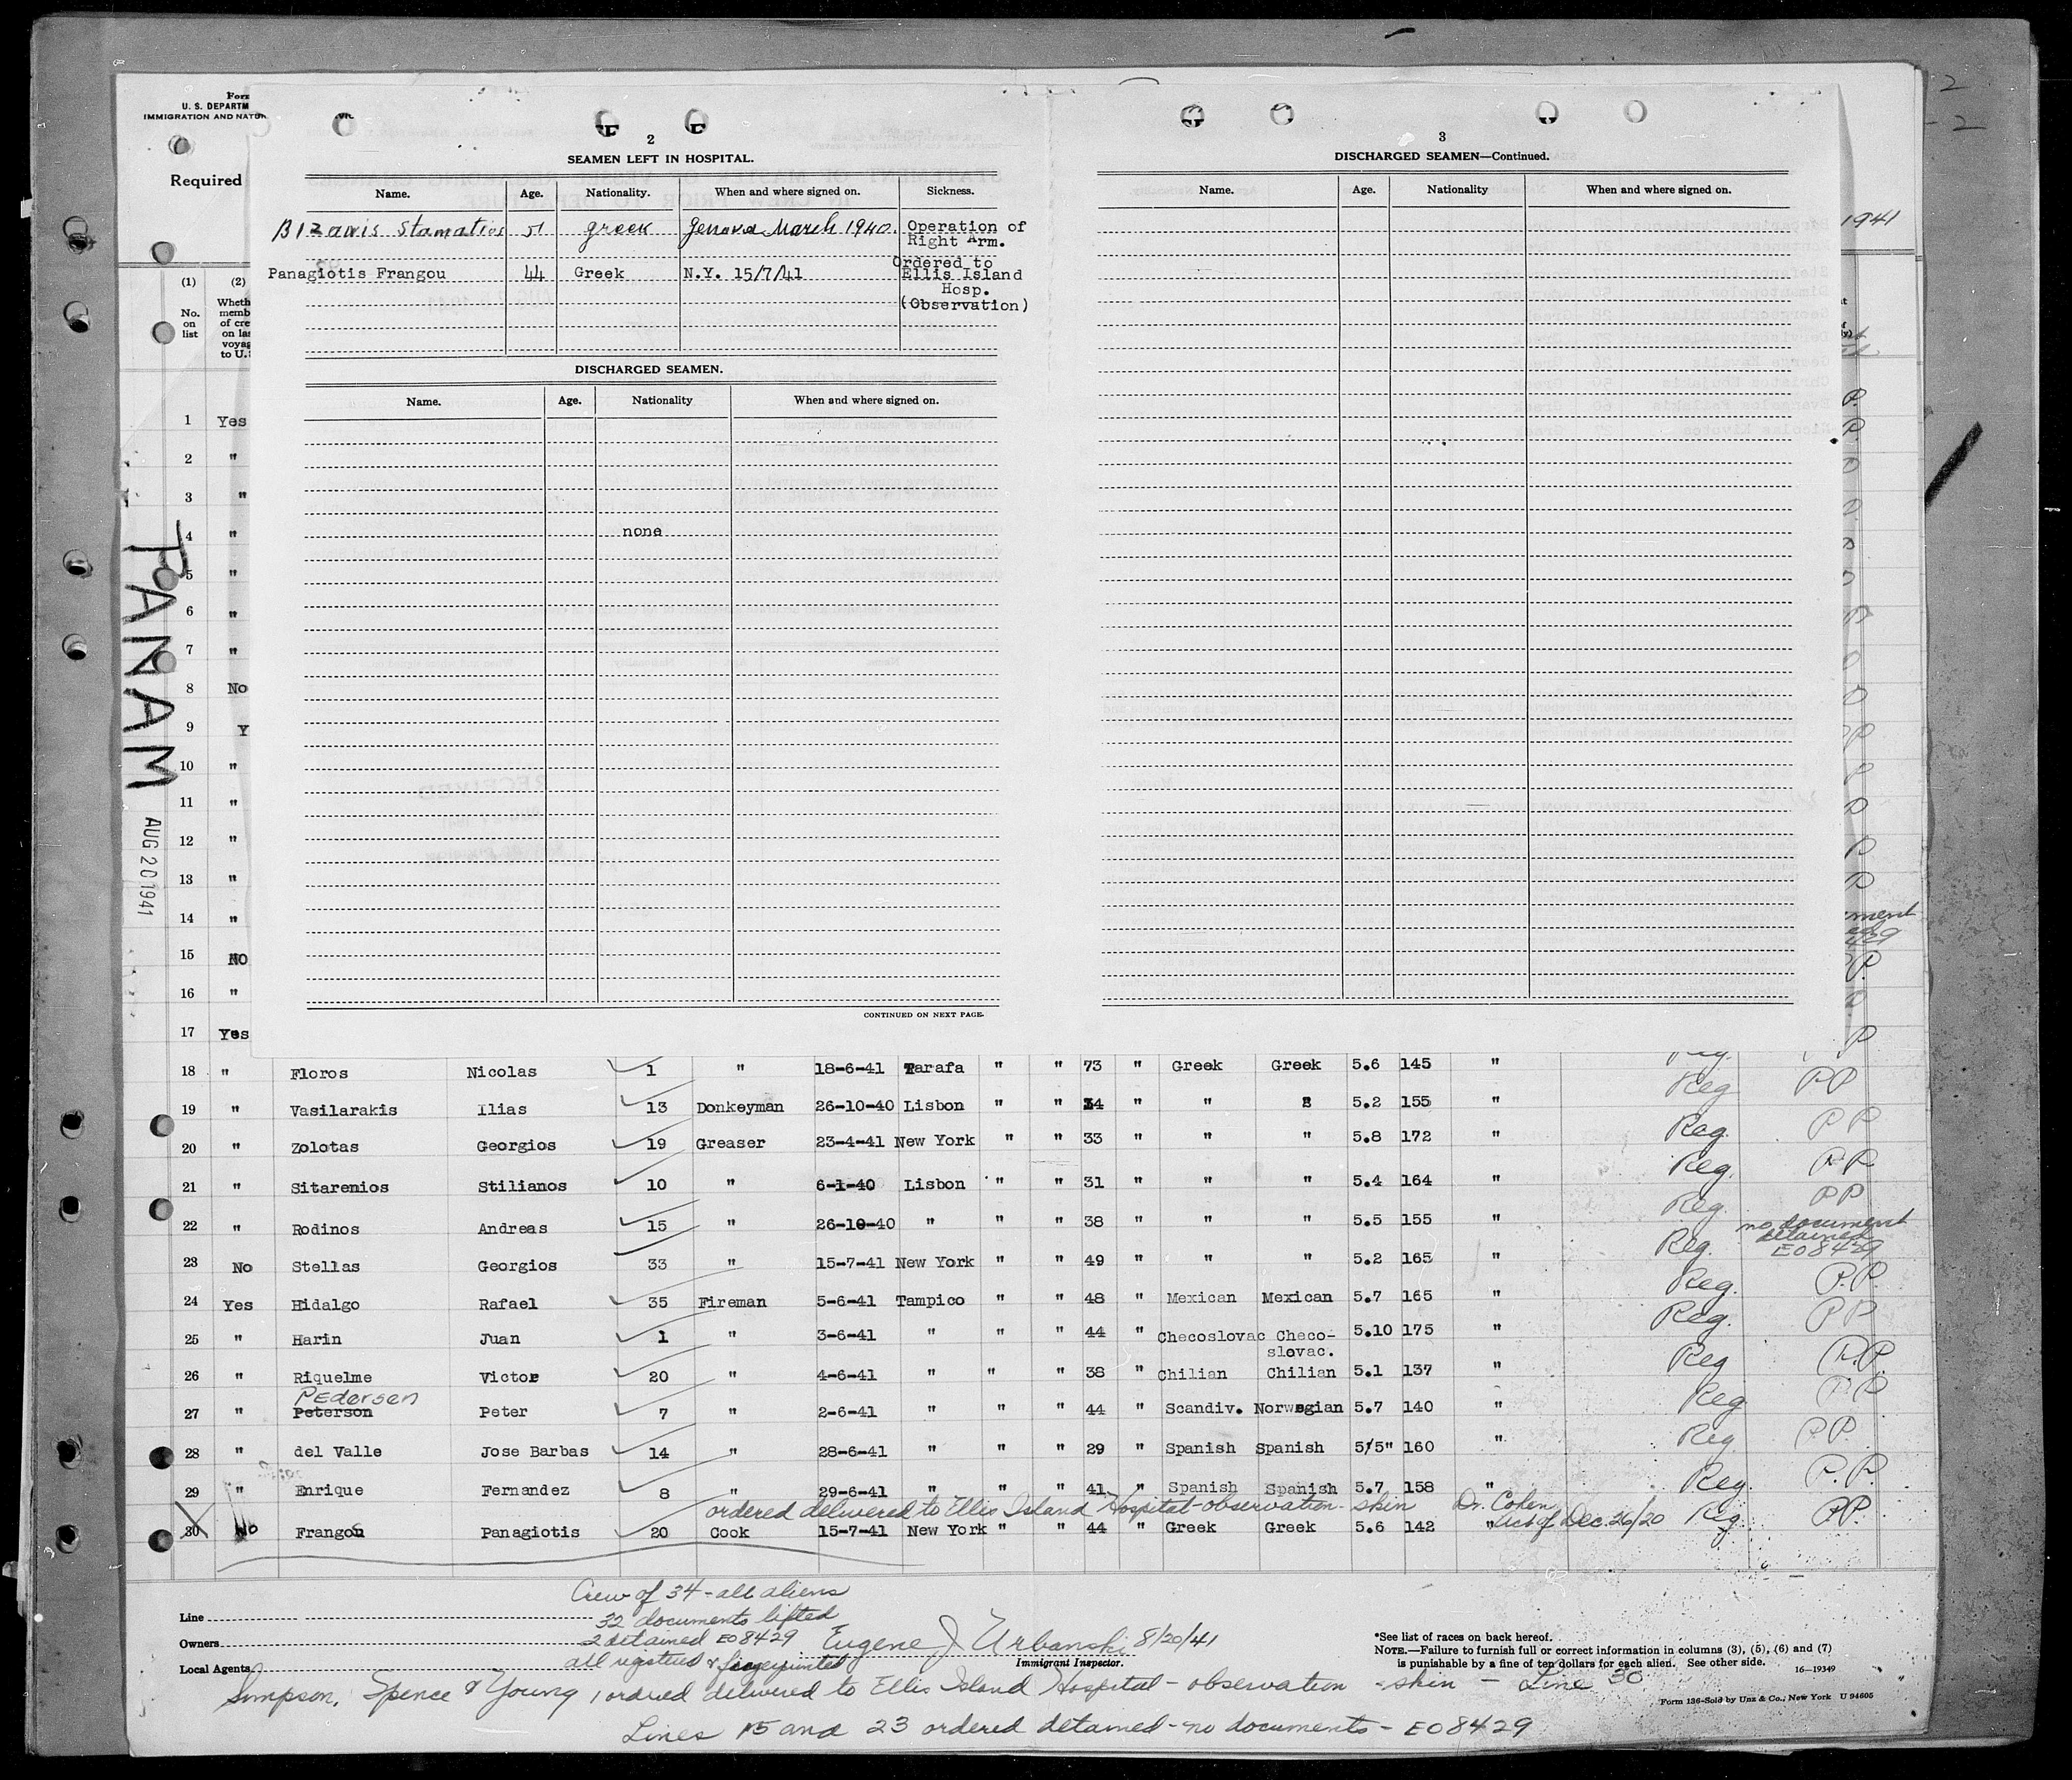 Form
U. S. DEPARTM
IMMIGRATION AND NATUR
Required
2
SEAMEN LEFT IN HOSPITAL.
Name. Age. Nationality. When and where signed on. Sickness.
BIZANIS Stamatios 51 greek Genova March 1940. Operation of
Right Arm.
Panagiotis Frangou 44 Greek N.Y. 15/7/41 Ordered to
Ellis Island
Hosp.
(Observation)
DISCHARGED SEAMEN.
Name. Age. Nationality When and where signed on.
none
CONTINUED ON NEXT PAGE.
3
DISCHARGED SEAMEN—Continued.
Name. Age. Nationality When and where signed on.
1941
(1) (2)
No. on list
Wheth
memb
of cre
on las
voyag
to U.S
PANAM
AUG 20 1941
1 Yes
2 "
3 "
4 "
5 "
6 "
7 "
8 No
9 Y
10 "
11 "
12 "
13 "
14 "
15 NO
16 "
17 Yes
18 " Floros Nicolas 1 " 18-6-41 Tarafa " " 73 " Greek Greek 5.6 145 " Reg PP
19 " Vasilarakis Ilias 13 Donkeyman 26-10-40 Lisbon " " 34 " " " 5.2 155 " Reg. PP
20 " Zolotas Georgios 19 Greaser 23-4-41 New York " " 33 " " " 5.8 172 " Reg. PP
21 " Sitarenios Stilianos 10 " 6-1-40 Lisbon " " 31 " " " 5.4 164 " Reg. PP
22 " Rodinos Andreas 15 " 26-10-40 " " " 38 " " " 5.5 155 "
no document
detained
EO8429
23 No Stellas Georgios 33 " 15-7-41 New York " " 49 " " " 5.2 165 " Reg.
24 Yes Hidalgo Rafael 35 Fireman 5-6-41 Tampico " " 48 " Mexican Mexican 5.7 165 " Reg. P.P.
25 " Harin Juan 1 " 3-6-41 " " " 44 " Checoslovac Checo-
slovac. 5.10 175 " Reg. PP
26 " Riquelme Victor 20 " 4-6-41 " " " 38 " Chilian Chilian 5.1 137 " Reg P.P.
PEdersen
27 " Peterson Peter 7 " 2-6-41 " " " 44 " Scandiv. Norwegian 5.7 140 " Reg PP
28 " del Valle Jose Barbas 14 " 28-6-41 " " " 29 " Spanish Spanish 5/5" 160 " Reg PP.
29 " Enrique Fernandez 8 " 29-6-41 " " " 41 " Spanish Spanish 5.7 158 " Reg. P.P.
ordered delivered to Ellis Island Hospital-observation-skin Dr. Cohen
Act of Dec. 26/20
30 No Frangou Panagiotis 20 Cook 15-7-41 New York " " 44 " Greek Greek 5.6 142 " Reg. PP.
Crew of 34 - all aliens
Line
32 documents lifted
Owners
2 detained EO8429 Eugene J Urbanski 8/20/41
Local Agents
all registered & fingerprinted
Immigrant Inspector.
*See list of races on back hereof.
NOTE.—Failure to furnish full or correct information in columns (3), (5), (6) and (7)
is punishable by a fine of ten dollars for each alien. See other side.
16—19349
Form 136-Sold by Unz & Co., New York U 94605
Simpson, Spence & Young 1 ordered delivered to Ellis Island Hospital - observation - skin - Line 30
Lines 15 and 23 ordered detained - no documents - EO8429